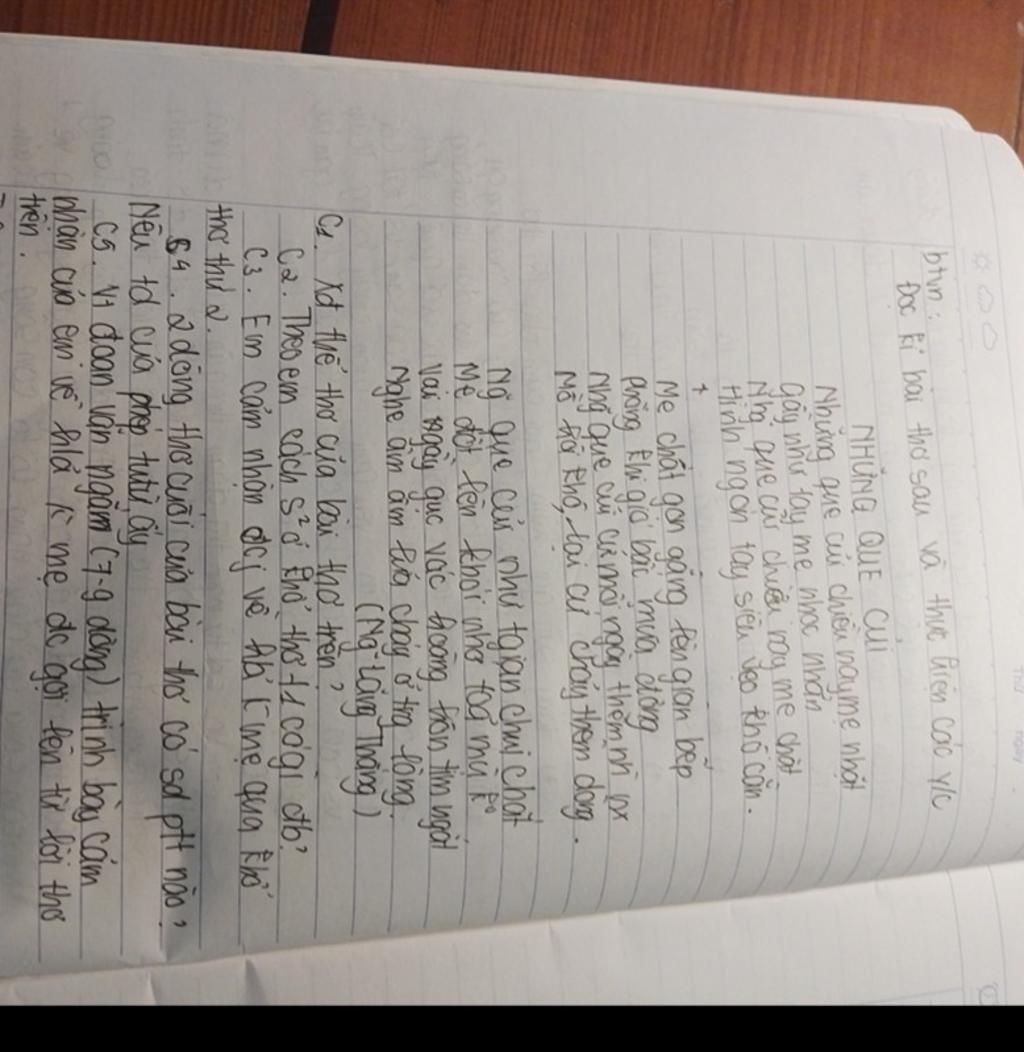 btvn:
Đọc kĩ bài thơ sau và thực hiện các y/c
NHỮNG QUE CỦI
Những que củi chiều nay mẹ nhặt
Gầy như tay mẹ nhọc nhằn
Nhg que củi chiều nay mẹ chặt
Hình ngón tay siêu vẹo khô cằn.
+
Mẹ chất gọn gàng lên gian bếp
Phòng khi gió bấc mưa dông
Nhg que củi cứ mỗi ngày thêm
Mồ hôi khô, lại cứ cháy thêm dòng.
Ng que củi như tgian chui chắt
Mẹ đốt lên khói nhoà toả mù
Vai ngày gục vác hoàng hôn tím ngắt
Nghe âm ấm lửa cháy ở tro lòng.
(Ng Lãng Thắng)
C1. Xđ thể thơ của bài thơ trên,
C2. Theo em cách s² ở khổ thơ t1 có gì đb,
C3. Em cảm nhận đcj về h/á ng mẹ qua khổ
thơ thứ 2.
C4. 2 dòng thơ cuối của bài thơ có sd ptt nào,
Nêu td của phép tu từ ấy
C5. V1 đoạn văn ngắm (7-9 dòng) trình bày cảm
nhận của em về h/á ng mẹ đc gợi lên từ lời thơ
trên.